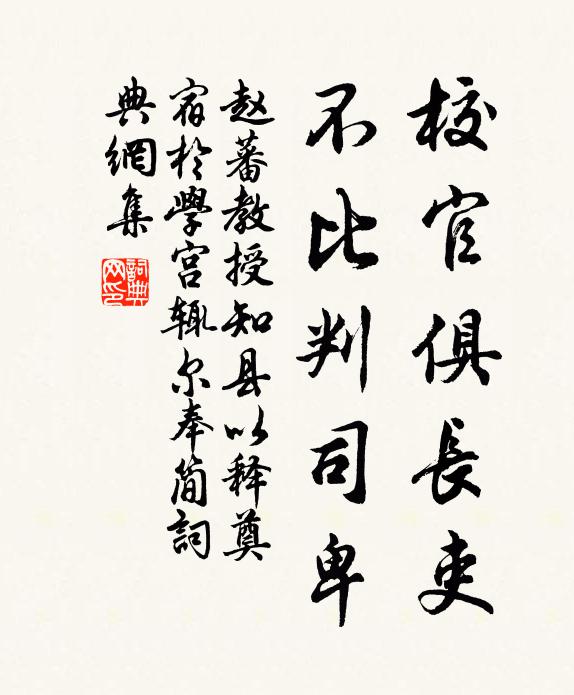 校官俱長吏
不比判司卑
赵蕃教授知县以释奠
宿於學宫辄尔奉简詞
典網集
詞典网印